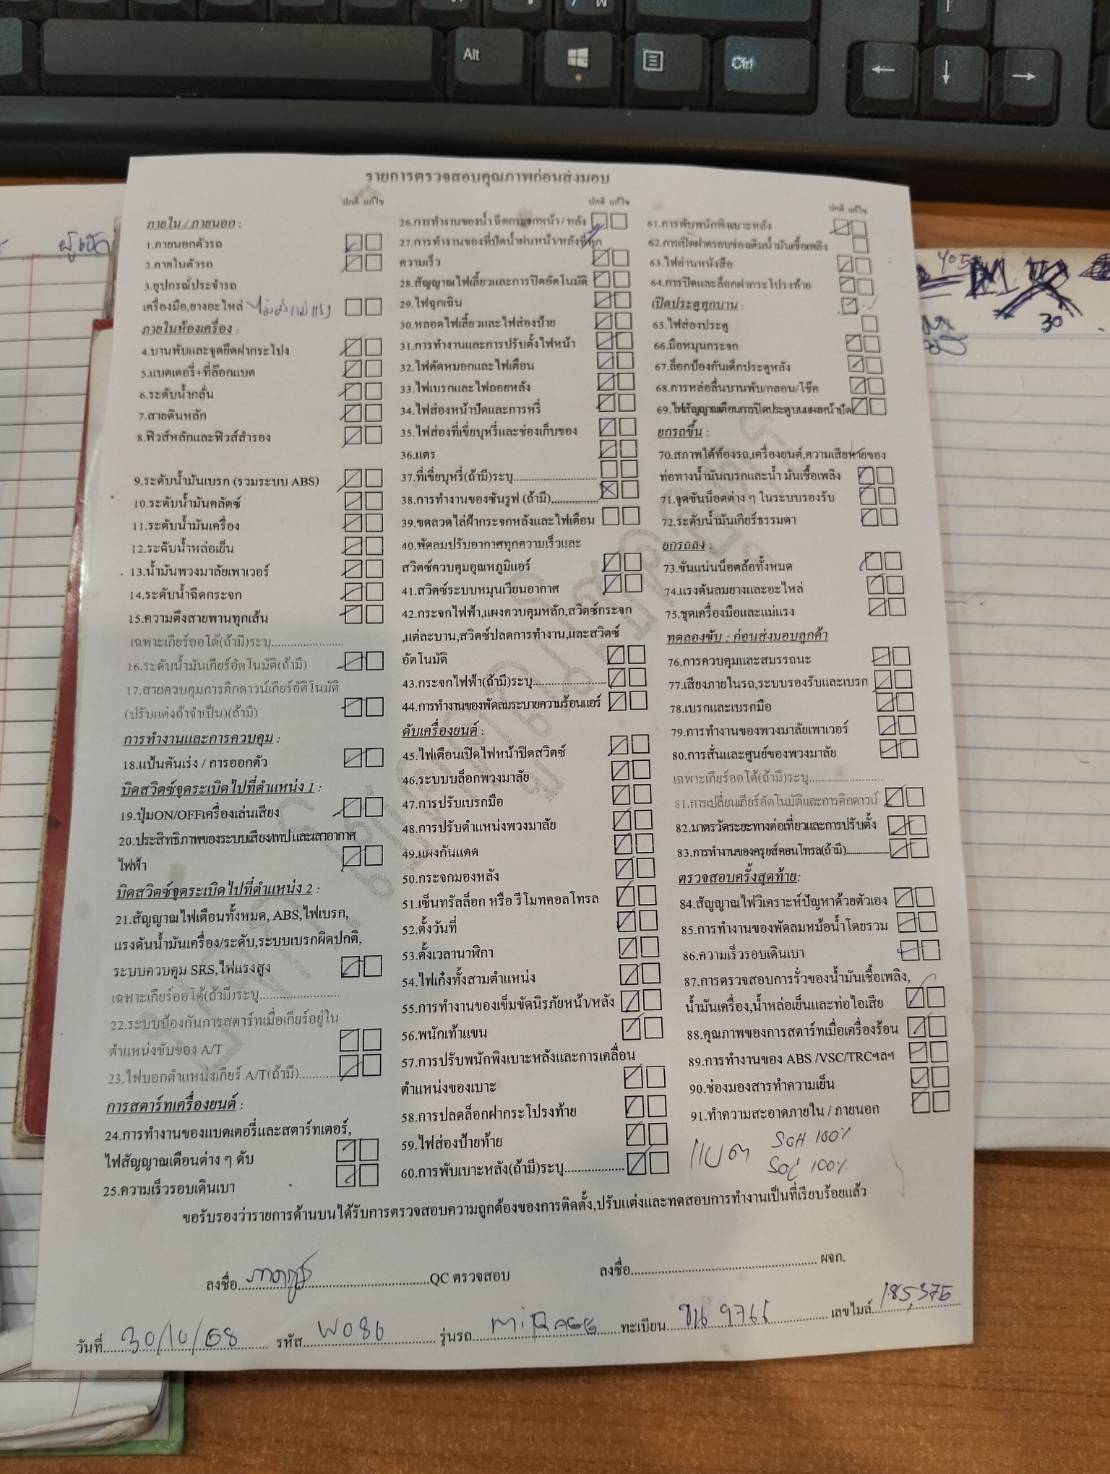 Alt
Ctrl
รายการตรวจสอบคุณภาพก่อนส่งมอบ
ปกติ แก้ไข
ภายใน / ภายนอก :
1.ภายนอกตัวรถ
2.ภายในตัวรถ
3.อุปกรณ์ประจำรถ
เครื่องมือ,ยางอะไหล่
ภายในห้องเครื่อง :
4.บานพับและจุดยึดฝากระโปง
5.แบตเตอรี่+ที่ล๊อกแบต
6.ระดับน้ำกลั่น
7.สายดินหลัก
8.ฟิวส์หลักและฟิวส์สำรอง
9.ระดับน้ำมันเบรก (รวมระบบ ABS)
10.ระดับน้ำมันคลัตช์
11.ระดับน้ำมันเครื่อง
12.ระดับน้ำหล่อเย็น
13.น้ำมันพวงมาลัยเพาเวอร์
14.ระดับน้ำฉีดกระจก
15.ความตึงสายพานทุกเส้น
เฉพาะเกียร์ออโต้(ถ้ามี)ระบุ....................
16.ระดับน้ำมันเกียร์อัตโนมัติ(ถ้ามี)
17.สายควบคุมการคิกดาวน์เกียร์อัติโนมัติ
(ปรับแต่งถ้าจำเป็น)(ถ้ามี)
การทำงานและการควบคุม :
18.แป้นคันเร่ง / การออกตัว
บิดสวิตช์จุดระเบิดไปที่ตำแหน่ง 1 :
19.ปุ่มON/OFFเครื่องเล่นเสียง
20.ประสิทธิภาพของระบบเสียง/เทป และเสาอากาศ
ไฟฟ้า
บิดสวิตซ์จุดระเบิดไปที่ตำแหน่ง 2 :
21.สัญญาณไฟเตือนทั้งหมด, ABS,ไฟเบรก,
แรงดันน้ำมันเครื่อง/ระดับ,ระบบเบรกผิดปกติ,
ระบบควบคุม SRS,ไฟแรงสูง
เฉพาะเกียร์ออโต้(ถ้ามี)ระบุ....................
22.ระบบป้องกันการสตาร์ทเมื่อเกียร์อยู่ใน
ตำแหน่งขับของ A/T
23.ไฟบอกตำแหน่งเกียร์ A/T(ถ้ามี)..........
การสตาร์ทเครื่องยนต์ :
24.การทำงานของแบตเตอรี่และสตาร์ทเตอร์,
ไฟสัญญาณเตือนต่าง ๆ ดับ
25.ความเร็วรอบเดินเบา
ปกติ แก้ไข
26.การทำงานของน้ำฉีดกระจกหน้า/หลัง
27.การทำงานของที่ปัดน้ำฝนหน้า/หลังที่ทุก
ความเร็ว
28.สัญญาณไฟเลี้ยวและการปิดอัตโนมัติ
29.ไฟฉุกเฉิน
30.หลอดไฟเลี้ยวและไฟส่องป้าย
31.การทำงานและการปรับตั้งไฟหน้า
32.ไฟตัดหมอกและไฟเตือน
33.ไฟเบรกและไฟถอยหลัง
34.ไฟส่องหน้าปัดและการหรี่
35.ไฟส่องที่เขี่ยบุหรี่และช่องเก็บของ
36.แตร
37.ที่เขี่ยบุหรี่(ถ้ามี)ระบุ....................
38.การทำงานของซันรูฟ (ถ้ามี)..............
39.ขดลวดไล่ฝ้ากระจกหลังและไฟเตือน
40.พัดลมปรับอากาศทุกความเร็วและ
สวิตช์ควบคุมอุณหภูมิแอร์
41.สวิตช์ระบบหมุนเวียนอากาศ
42.กระจกไฟฟ้า,แผงควบคุมหลัก,สวิตซ์กระจก
แต่ละบาน,สวิตซ์ปลดการทำงาน,และสวิตซ์
อัตโนมัติ
43.กระจกไฟฟ้า(ถ้ามี)ระบุ....................
44.การทำงานของพัดลมระบายความร้อนแอร์
ดับเครื่องยนต์ :
45.ไฟเตือนเปิดไฟหน้าปิดสวิตซ์
46.ระบบบล็อกพวงมาลัย
47.การปรับเบรกมือ
48.การปรับตำแหน่งพวงมาลัย
49.แผงกันแดด
50.กระจกมองหลัง
51.เซ็นทรัลล็อก หรือ รีโมทคอลโทรล
52.ตั้งวันที่
53.ตั้งเวลานาฬิกา
54.ไฟเก๋งทั้งสามตำแหน่ง
55.การทำงานของเข็มขัดนิรภัยหน้า/หลัง
56.พนักเท้าแขน
57.การปรับพนักพิงเบาะหลังและการเคลื่อน
ตำแหน่งของเบาะ
58.การปลดล็อกฝากระโปรงท้าย
59.ไฟส่องป้ายท้าย
60.การพับเบาะหลัง(ถ้ามี)ระบุ..................
ปกติ แก้ไข
61.การพับพนักพิงเบาะหลัง
62.การเปิดฝาครอบช่องเติมน้ำมันเชื้อเพลิง
63.ไฟอ่านหนังสือ
64.การปิดและล็อกฝากระโปรงท้าย
เปิดประตูทุกบาน :
65.ไฟส่องประตู
66.มือหมุนกระจก
67.ล็อกป้องกันเด็กประตูหลัง
68.การหล่อลื่นบานพับ/กลอน/โช๊ค
69.ไฟสัญญาณเตือนการปิดประตูบนแผงหน้าปัด
ยกรถขึ้น :
70.สภาพใต้ท้องรถ,เครื่องยนต์,ความเสียหายของ
ท่อทางน้ำมันเบรกและน้ำมันเชื้อเพลิง
71.จุดขันน็อตต่าง ๆ ในระบบรองรับ
72.ระดับน้ำมันเกียร์ธรรมดา
ยกรถลง :
73.ขันแน่นน็อตล้อทั้งหมด
74.แรงดันลมยางและอะไหล่
75.ชุดเครื่องมือและแม่แรง
ทดลองขับ : ก่อนส่งมอบลูกค้า
76.การควบคุมและสมรรถนะ
77.เสียงภายในรถ,ระบบรองรับและเบรก
78.เบรกและเบรกมือ
79.การทำงานของพวงมาลัยเพาเวอร์
80.การสั่นและศูนย์ของพวงมาลัย
เฉพาะเกียร์ออโต้(ถ้ามี)ระบุ....................
81.การเปลี่ยนเกียร์อัตโนมัติและการคิกดาวน์
82.มาตรวัดระยะทางต่อเที่ยวและการปรับตั้ง
83.การทำงานของครุยส์คอนโทรล(ถ้ามี)............
ตรวจสอบครั้งสุดท้าย:
84.สัญญาณไฟวิเคราะห์ปัญหาด้วยตัวเอง
85.การทำงานของพัดลมหม้อน้ำโดยรวม
86.ความเร็วรอบเดินเบา
87.การตรวจสอบการรั่วของน้ำมันเชื้อเพลิง,
น้ำมันเครื่อง,น้ำหล่อเย็นและท่อไอเสีย
88.คุณภาพของการสตาร์ทเมื่อเครื่องร้อน
89.การทำงานของ ABS /VSC/TRCฯลฯ
90.ช่องมองสารทำความเย็น
91.ทำความสะอาดภายใน / ภายนอก
แบต SOH 100%
SOC 100%
ขอรับรองว่ารายการด้านบนได้รับการตรวจสอบความถูกต้องของการติดตั้ง,ปรับแต่งและทดสอบการทำงานเป็นที่เรียบร้อยแล้ว
ลงชื่อ..............................QC ตรวจสอบ ลงชื่อ.............................. ผจก.
วันที่ 30/10/68 รหัส W086 รุ่นรถ MIRAGE ทะเบียน 9766 เลขไมล์ 185,375
30